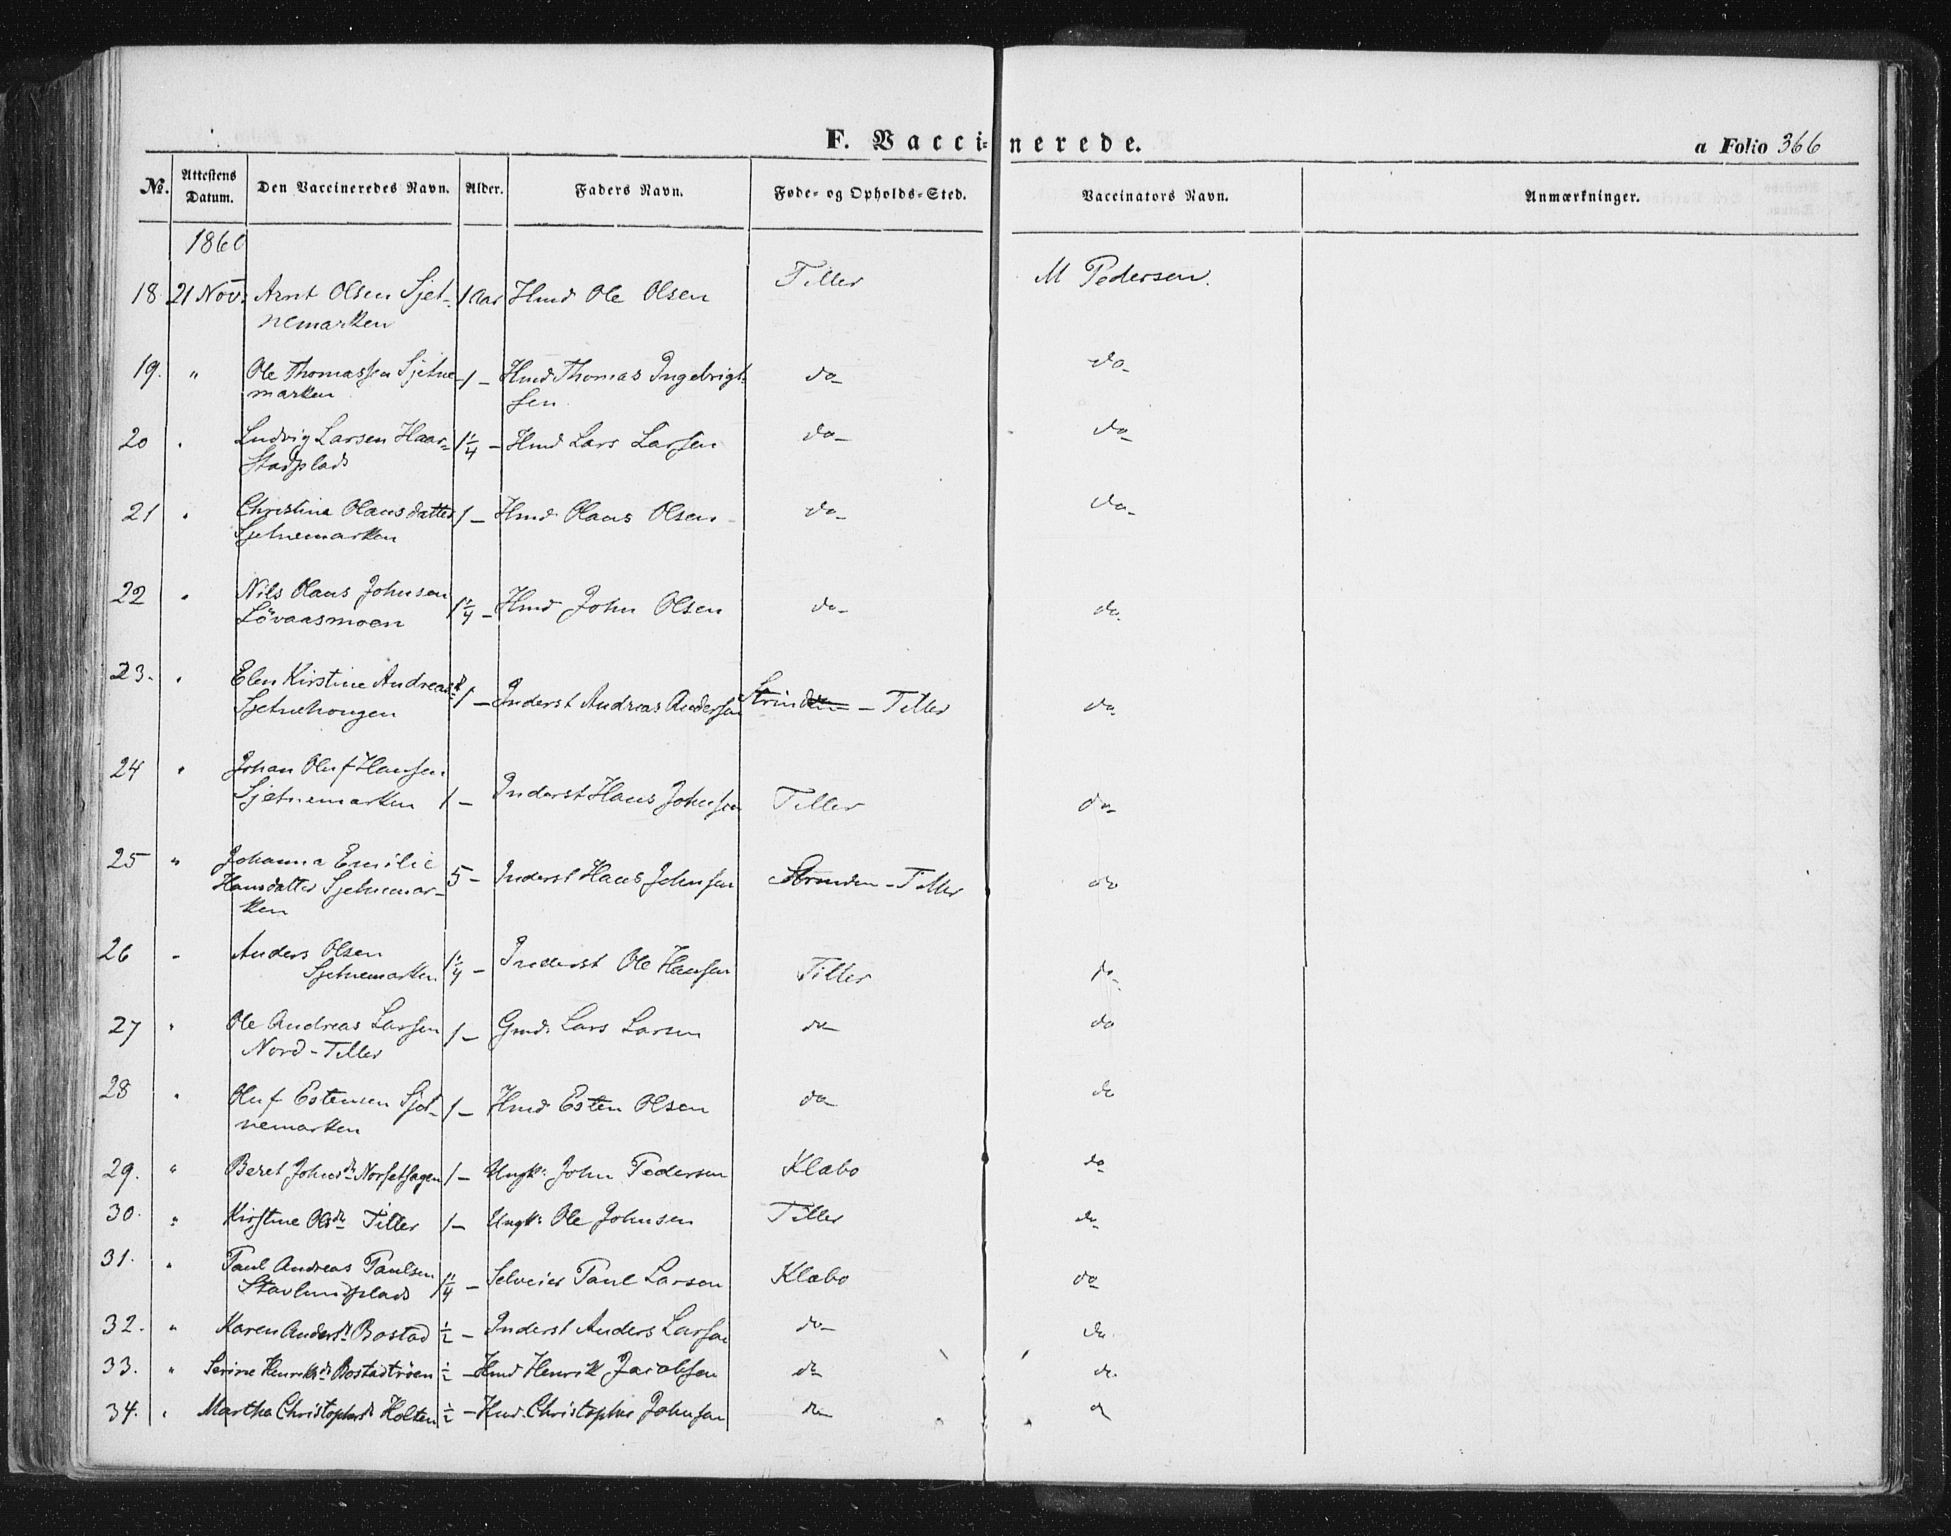 F. Vaccinerede.
a Folio 366
No. Attestens Datum. Den Vaccineredes Navn. Alder. Faders Navn. Føde- og Opholds-Sted. Vaccinators Navn. Anmærkninger.
1860
18 21 Nov: Arnt Olsen Sjet- 1 Aar Hmd Ole Olsen Tiller M Pedersen.
nemarken
19. " Ole Thomassen Sjetne- 1 – Hmd Thomas Ingebrigt- do do
marken sen
20 " Ludvig Larsen Haar- 1 1/4 – Hmd Lars Larsen do do
stadplads
21 " Christina Olausdatter 1 – Hmd Olaus Olsen do do
Sjetnemarken
22 " Nils Olaus Johnsen 1 1/4 – Hmd John Olsen do do
Løvaasmoen
23. " Elen Kirstine Andreasd 1 – Inderst Andreas Andersen Strinden – Tiller do
Sjetnehougen
24 " Johan Oluf Hansen
Sjetnemarken 1 – Inderst Hans Johnsen Tiller do
25 " Johanna Emilie
Hansdatter Sjetnemar- 5 – Inderst Hans Johnsen Strinden – Tiller do
ken
26 " Anders Olsen
Sjetnemarken 1 1/4 – Inderst Ole Hansen Tiller do
27 " Ole Andreas Larsen 1 – Gmd. Lars Larsen do do
Nord-Tiller
28 " Oluf Estensen Sjet- 1 – Hmd Esten Olsen do do
nemarken
29. " Beret Johnsdr Norsethagen 1 – Ungk: John Pedersen Klæbo do
30. " Kirstine Olsdr Tiller 1 – Ungk: Ole Johnsen Tiller do
31. " Paul Andreas Paulsen
plads 1 1/4 – Selveier Paul Larsen Klæbo do
32. " Karen Andersdr Bostad 1/2 – Inderst Anders Larsen do do
33. " Serine Henriksdr Bostadtrøen 1/2 – Hmd Henrik Jacobsen do do
34. " Martha Christophersdr Holten 1/2 – Hmd. Christopher Johnsen do do